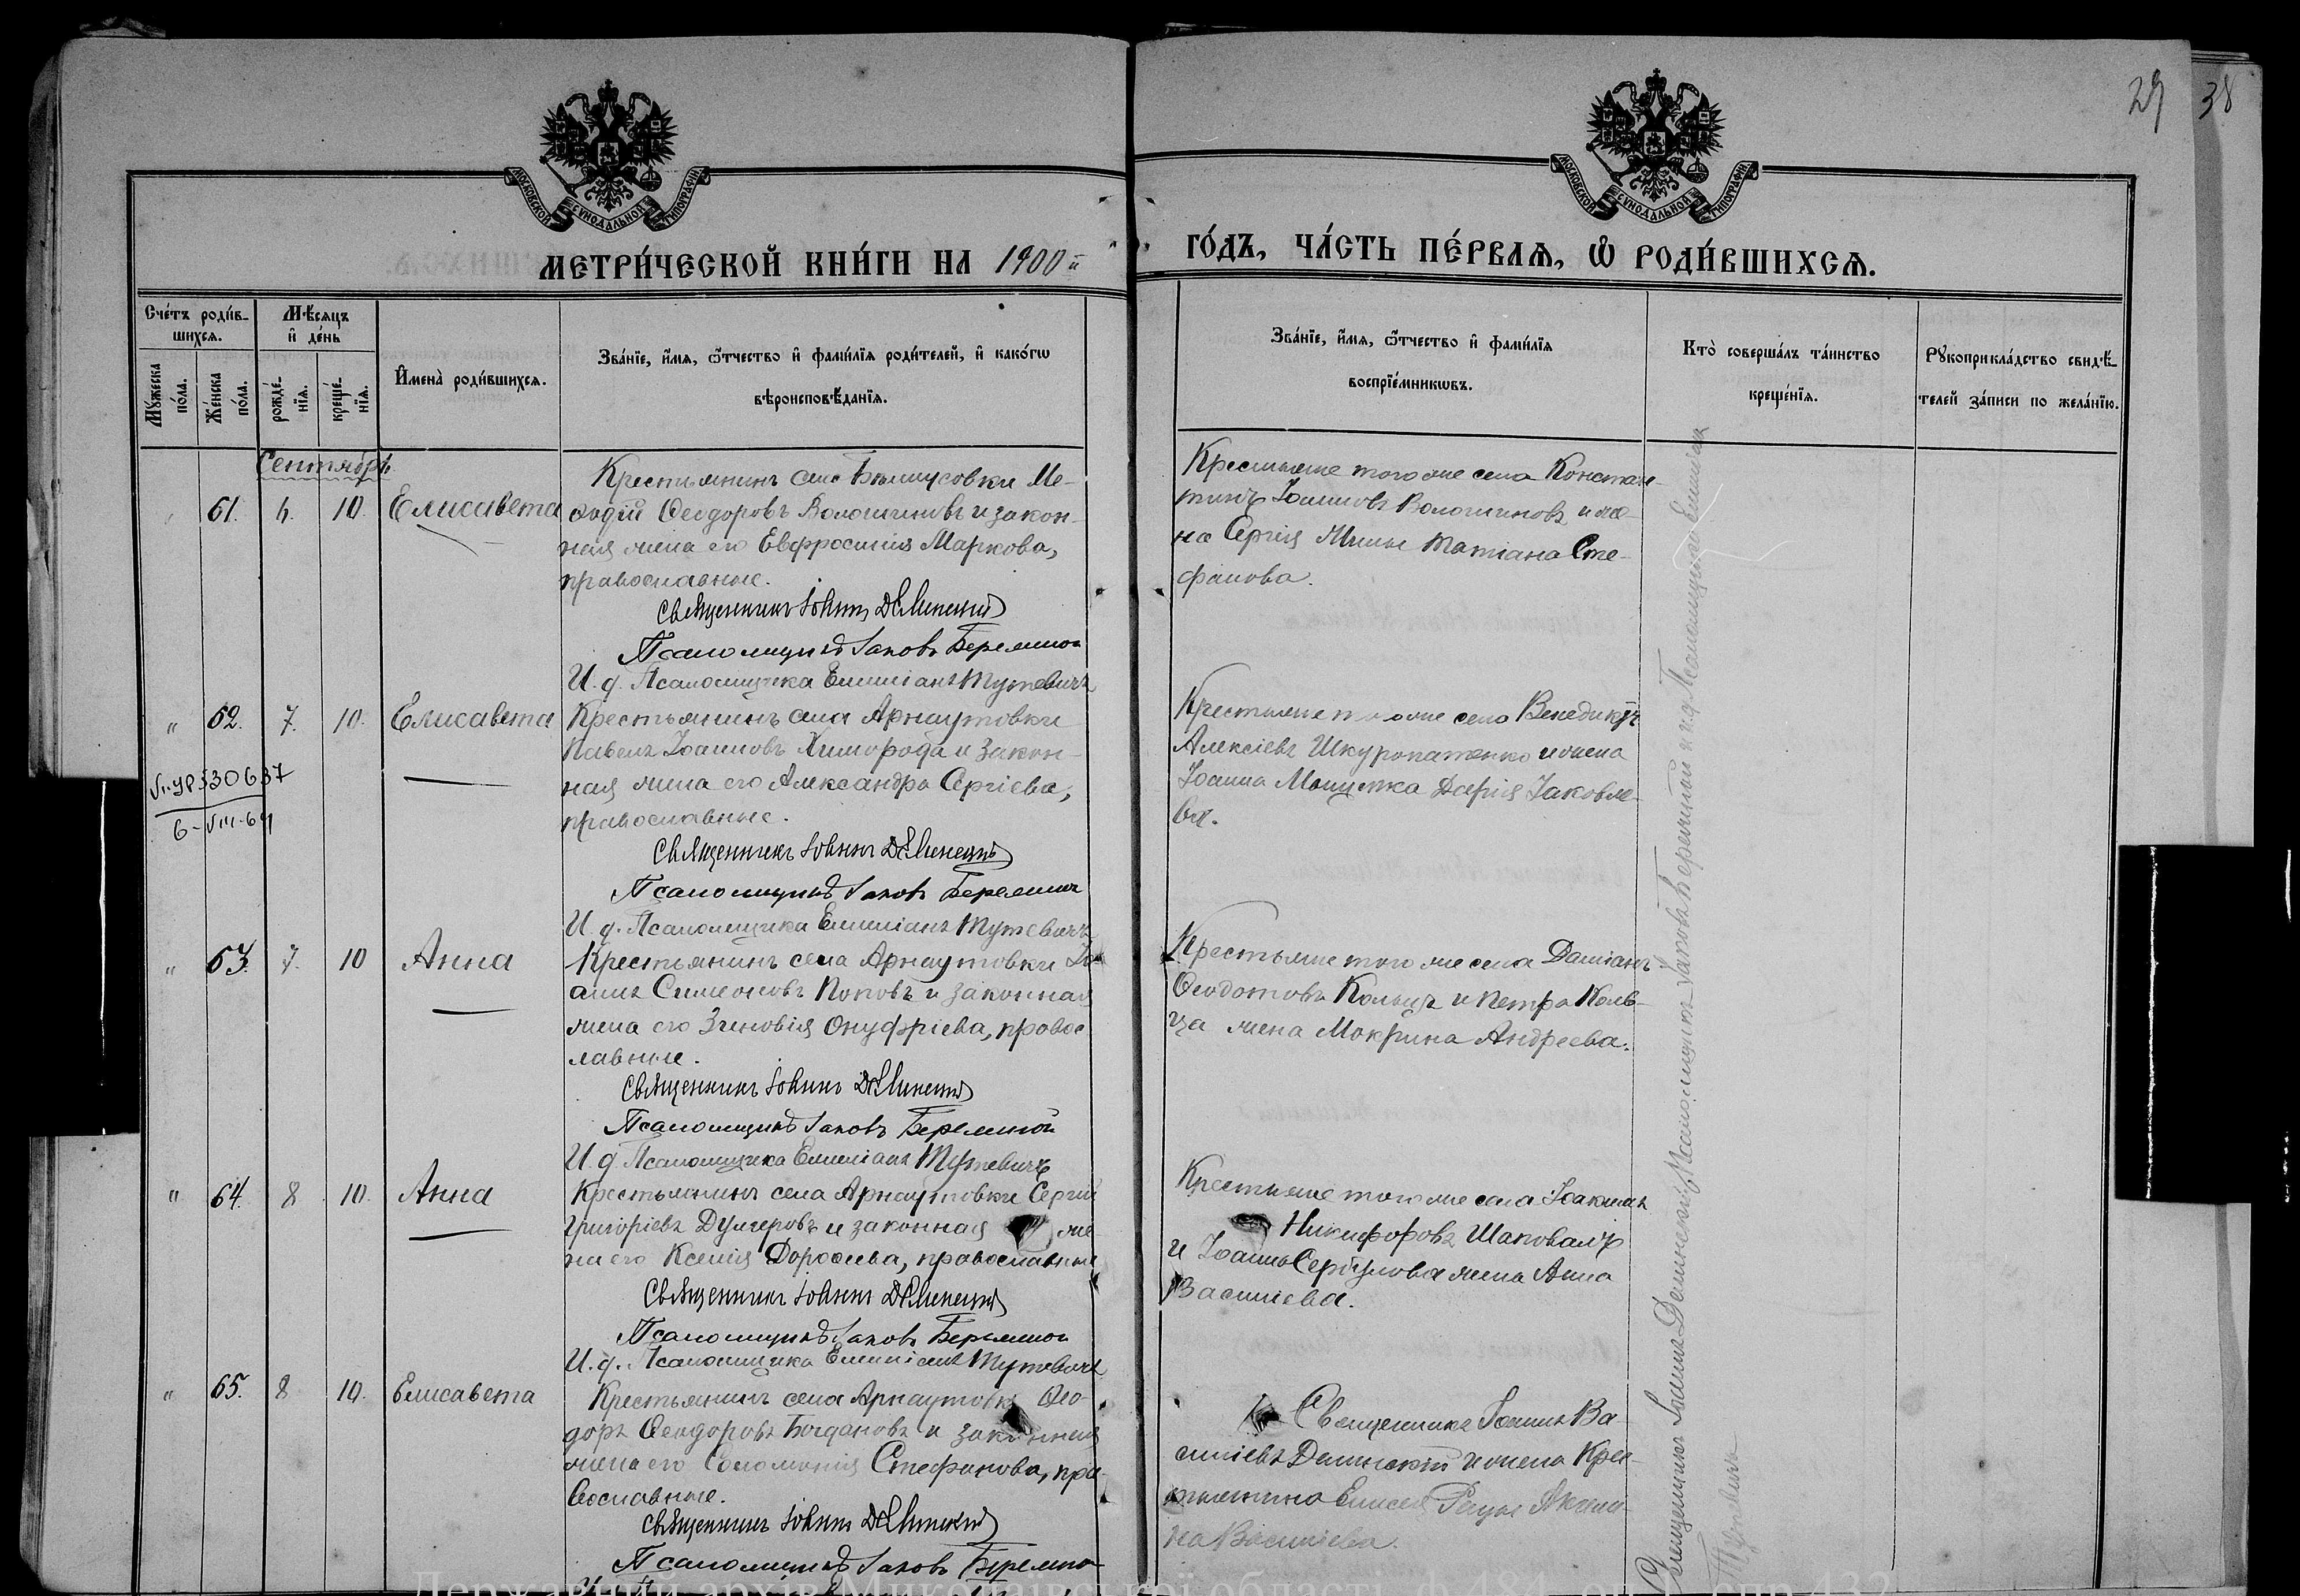 29 38
МОСКОВСКОЙ СѴНОДАЛЬНОЙ ТИПОГРАФІИ
МОСКОВСКОЙ СѴНОДАЛЬНОЙ ТИПОГРАФІИ
МЕТРИ́ЧЕСКОЙ КНИ́ГИ НА 1900й
ГО́ДЪ, ЧА́СТЬ ПЕ́РВАѦ, Ѽ РОДИ́ВШИХСѦ.
Сче́тъ роди́в-
шихсѧ.
Мꙋжеска по́ла.
Же́нска по́ла.
Мѣ́сѧцъ
и҆ де́нь
рожде́-нїѧ.
креще́-нїѧ.
И҆мена̀ роди́вшихсѧ.
Зва́нїе, и҆́мѧ, ѻ҆́тчество и҆ фами́лїѧ роди́телей, и҆ како́гѡ
вѣроисповѣ́данїѧ.
Зва́нїе, и҆́мѧ, ѻ҆́тчество и҆ фами́лїѧ
воспрїе́мникѡвъ.
Кто̀ соверша́лъ та́инство
креще́нїѧ.
Рꙋкоприкла́дство свидѣ́-
телей за́писи по жела́нїю.
Сентябрь
61. 4. 10. Елисавета
Крестьянинъ села
ѳодій Ѳеодоровъ Волошиновъ и закон-
ная жена его Евфросинія Маркова,
православные.
Священникъ Іоаннъ Деминскій
Псаломщикъ Іаковъ Бережной
И. д. Псаломщика Емиліанъ Тутевичъ
Крестьяне того же села Констан-
тинъ Іоанновъ Волошиновъ и же-
на Сергія Татіана Сте-
фанова.
" 62. 7. 10. Елисавета
Крестьянинъ села Арнаутовки
Павелъ Іоанновъ и закон-
ная жена его Александра Сергіева,
православные.
Священникъ Іоаннъ Деминскій
Псаломщикъ Іаковъ Бережной
И. д. Псаломщика Емиліанъ Тутевичъ
Крестьяне того же села Венедиктъ
Алексіевъ Шкуропатенко и жена
Іоанна Дарія Іаковле-
ва.
530637
6-VIII-64
" 63. 7. 10 Анна
Крестьянинъ села Арнаутовки Іо-
аннъ Симеоновъ Поповъ и законная
жена его Зиновія Онуфріева, правос
лавные.
Священникъ Іоаннъ Деминскій
Псаломщикъ Іаковъ Бережной
И. д. Псаломщика Емиліанъ Тутевичъ
Крестьяне того же села Даміанъ
Ѳеодотовъ Кольцъ и Петра Коль-
ца жена Мокрина Андреева.
" 64. 8 10. Анна
Крестьянинъ села Арнаутовки Сергій
Григоріевъ Дулгеровъ и законная же-
на его Ксенія Дороѳеева, православные
Священникъ Іоаннъ Деминскій
Псаломщикъ Іаковъ Бережной
И. д. Псаломщика Емиліанъ Тутевичъ
Крестьяне того же села Іоакимъ
Никифоровъ Шаповалъ
и Іоанна жена Анна
Василіева.
" 65. 8 10. Елисавета
Крестьянинъ села Арнаутовки Ѳео-
доръ Ѳеодоровъ Богдановъ и законная
жена его Соломонія Стефанова, пра-
вославные.
Священникъ Іоаннъ Деминскій
Псаломщикъ Іаковъ Бережной
Священникъ Іоаннъ Ва-
силіевъ Деминскій и жена Крес-
тьянина Елисея Акили-
на Василіева.
Священникъ Іоаннъ Деминскій, Псаломщикъ Іаковъ Бережной и и.д. Псаломщика Емиліанъ
Тутевичъ
Державний архів Миколаївської області